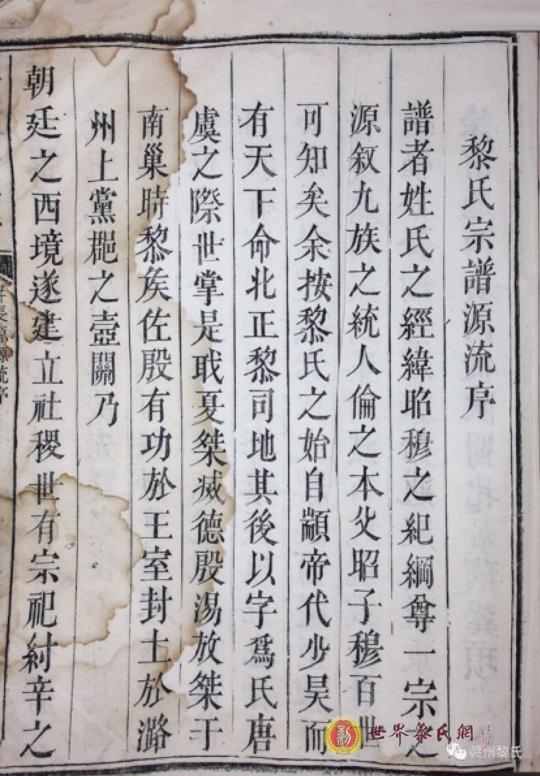 黎氏宗譜源流序
譜者姓氏之經緯昭穆之紀綱尊一宗之
源叙九族之統人倫之本父昭子穆百世
可知矣余按黎氏之始自顓帝代少昊而
有天下命北正黎司地其後以字爲氏唐
虞之際世掌是戢夏桀烕德殷湯放桀于
南巢時黎矦佐殷有功於王室封土於潞
州上黨郡之壺關乃
朝廷之西境遂建立社稷世有宗祀紂辛之
世界黎氏網
赣州黎氏